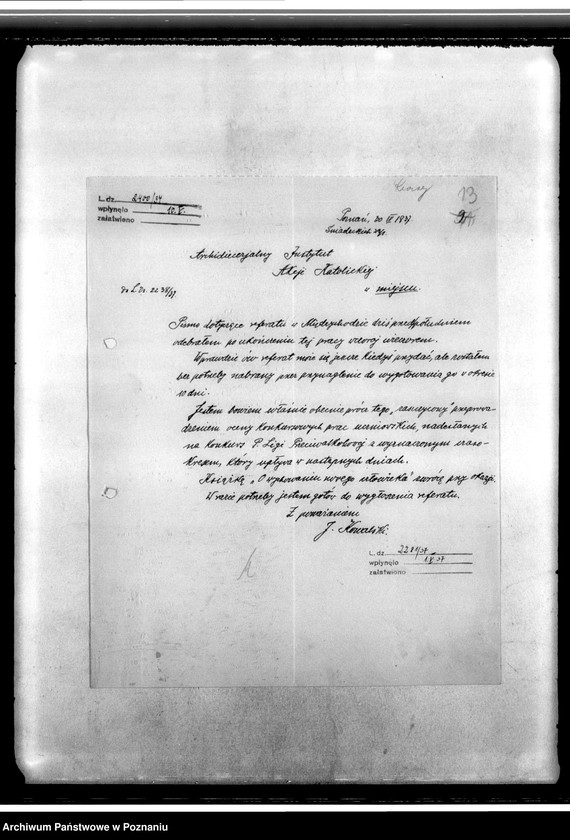 13
L. dz. 2400/37
wpłynęło 10.V.
załatwiono
Poznań, 30 IV 1937.
Śniadeckich
Archidiecezjalny Instytut
Akcji Katolickiej
w miejscu.
do L. Dz. 2238/37
Pismo dotyczące referatu w Międzychodzie dziś przedpołudniem
odebrałem po ukończeniu tej pracy wczoraj wieczorem.
Wprawdzie ów referat może się jeszcze kiedyś przydać, ale zostałem
bez potrzeby nabrany przez przynaglenie do wygotowania go w okresie
10 dni.
Jestem bowiem właśnie obecnie prócz tego "zaszczycony" przeprowa-
dzeniem oceny konkursowych prac uczniowskich, nadesłanych
na konkurs P. Ligi Przeciwalkohol. z wyznaczonym czaso-
kresem, który upływa w następnych dniach.
Książkę "O wychowaniu nowego człowieka" zwrócę przy okazji.
W razie potrzeby jestem gotów do wygłoszenia referatu.
Z poważaniem
J. Kowalski.
L. dz. 2281/37
wpłynęło 1.V.37
załatwiono
Archiwum Państwowe w Poznaniu